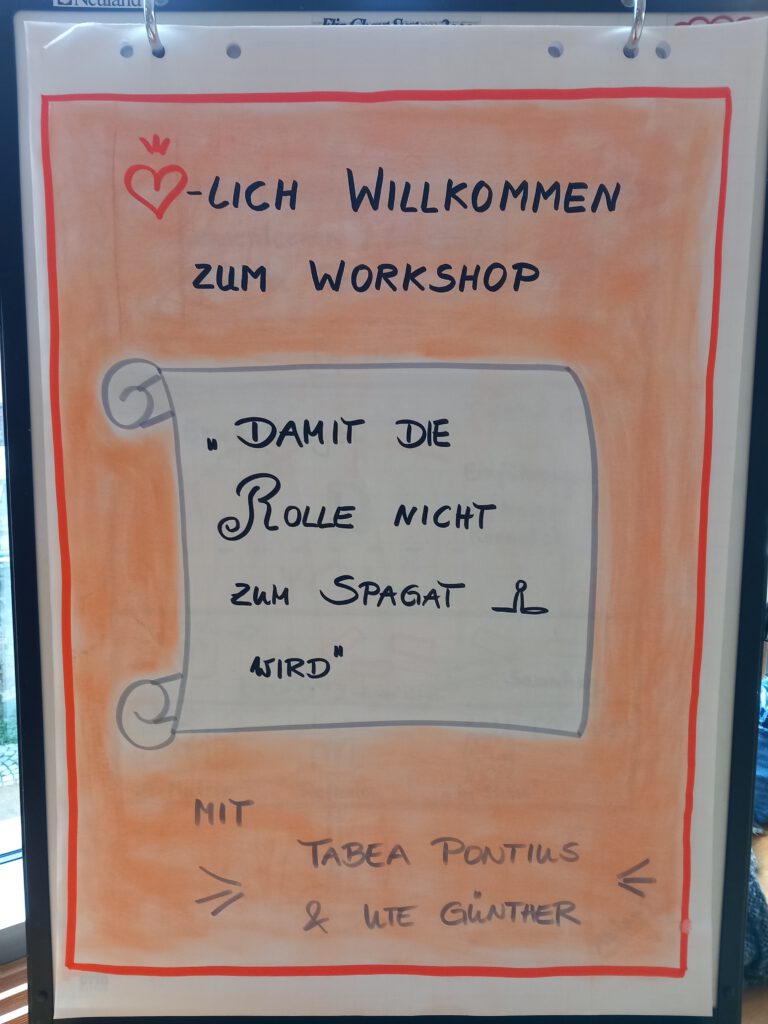 Neuland
-LICH WILLKOMMEN
ZUM WORKSHOP
„DAMIT DIE
ROLLE NICHT
ZUM SPAGAT
WIRD"
MIT
TABEA PONTIUS
& UTE GÜNTHER